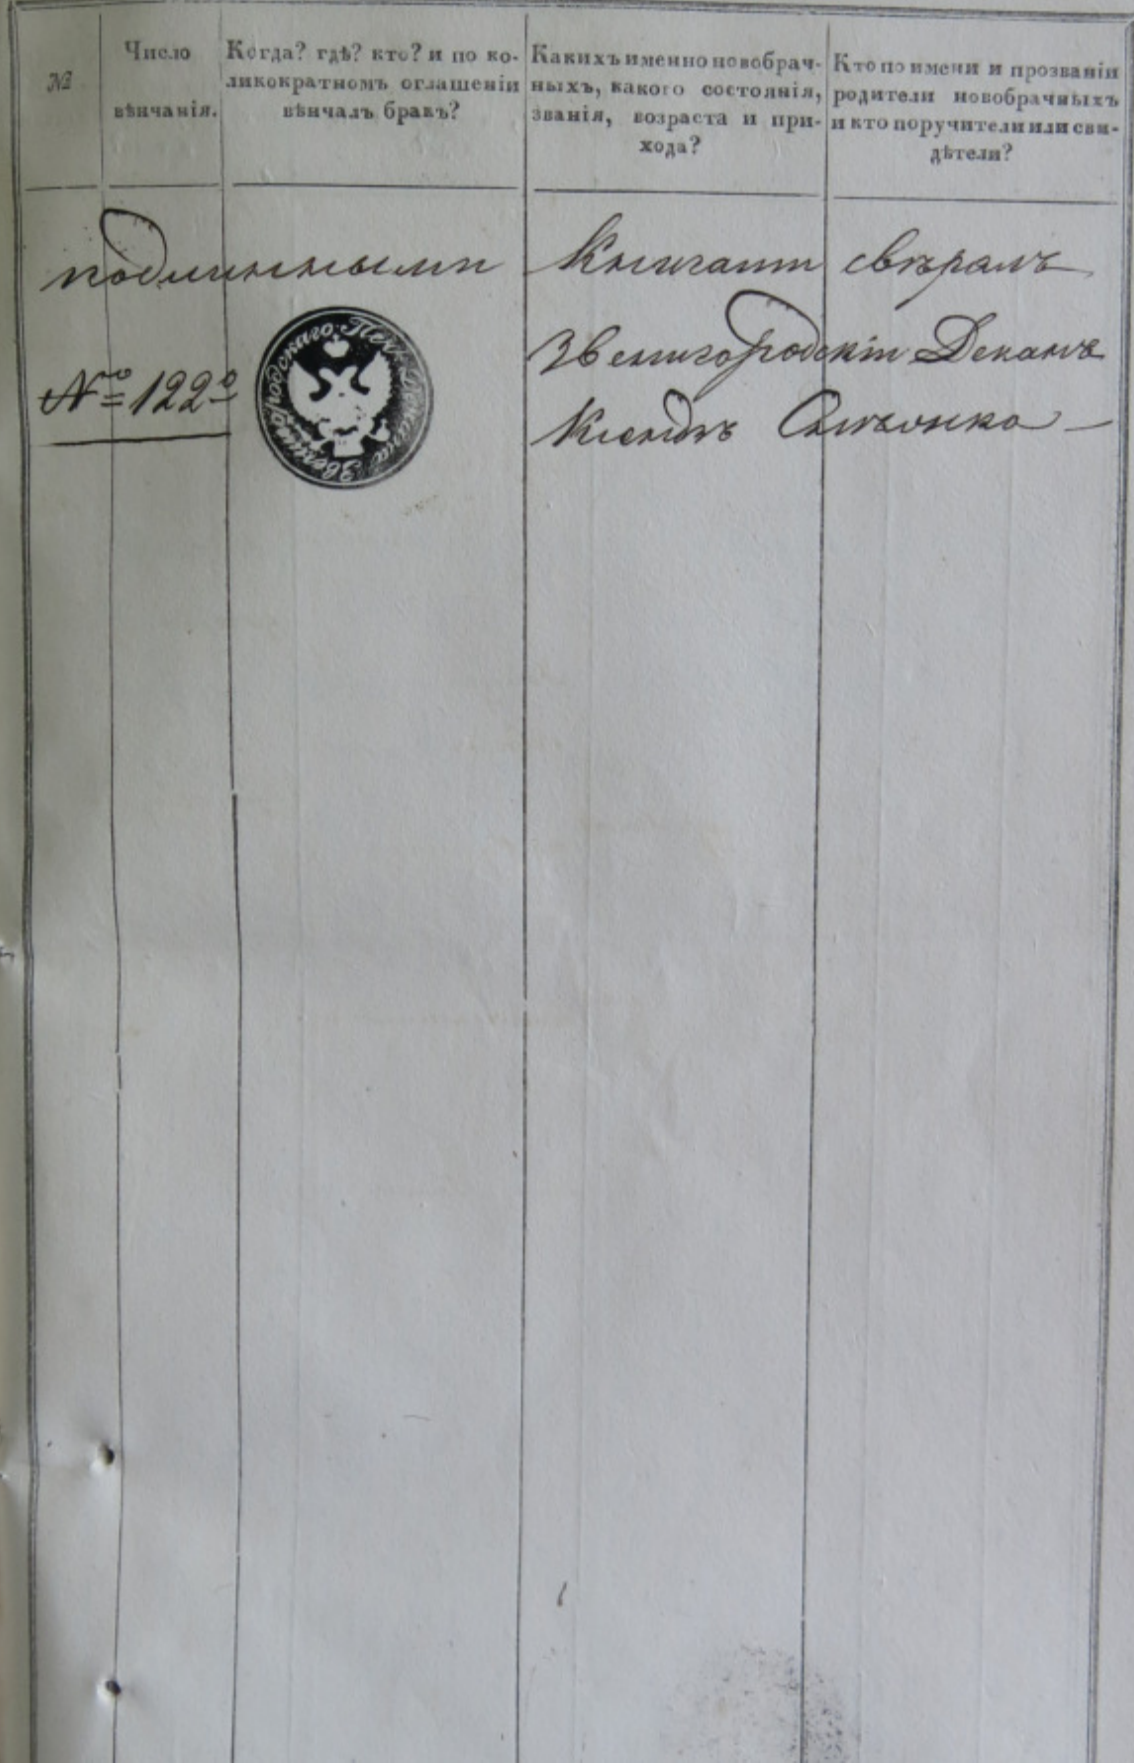 №
Число
вѣнчанія.
Когда? гдѣ? кто? и по ко-
ликократномъ оглашеніи
вѣнчалъ бракъ?
Какихъ именно новобрач-
ныхъ, какого состоянія,
званія, возраста и при-
хода?
Кто по имени и прозваніи
родители новобрачныхъ
и кто поручители или сви-
дѣтели?
подлинными Книгами свѣралъ
Звенигородскій Деканъ
№ 122
Ксендзъ